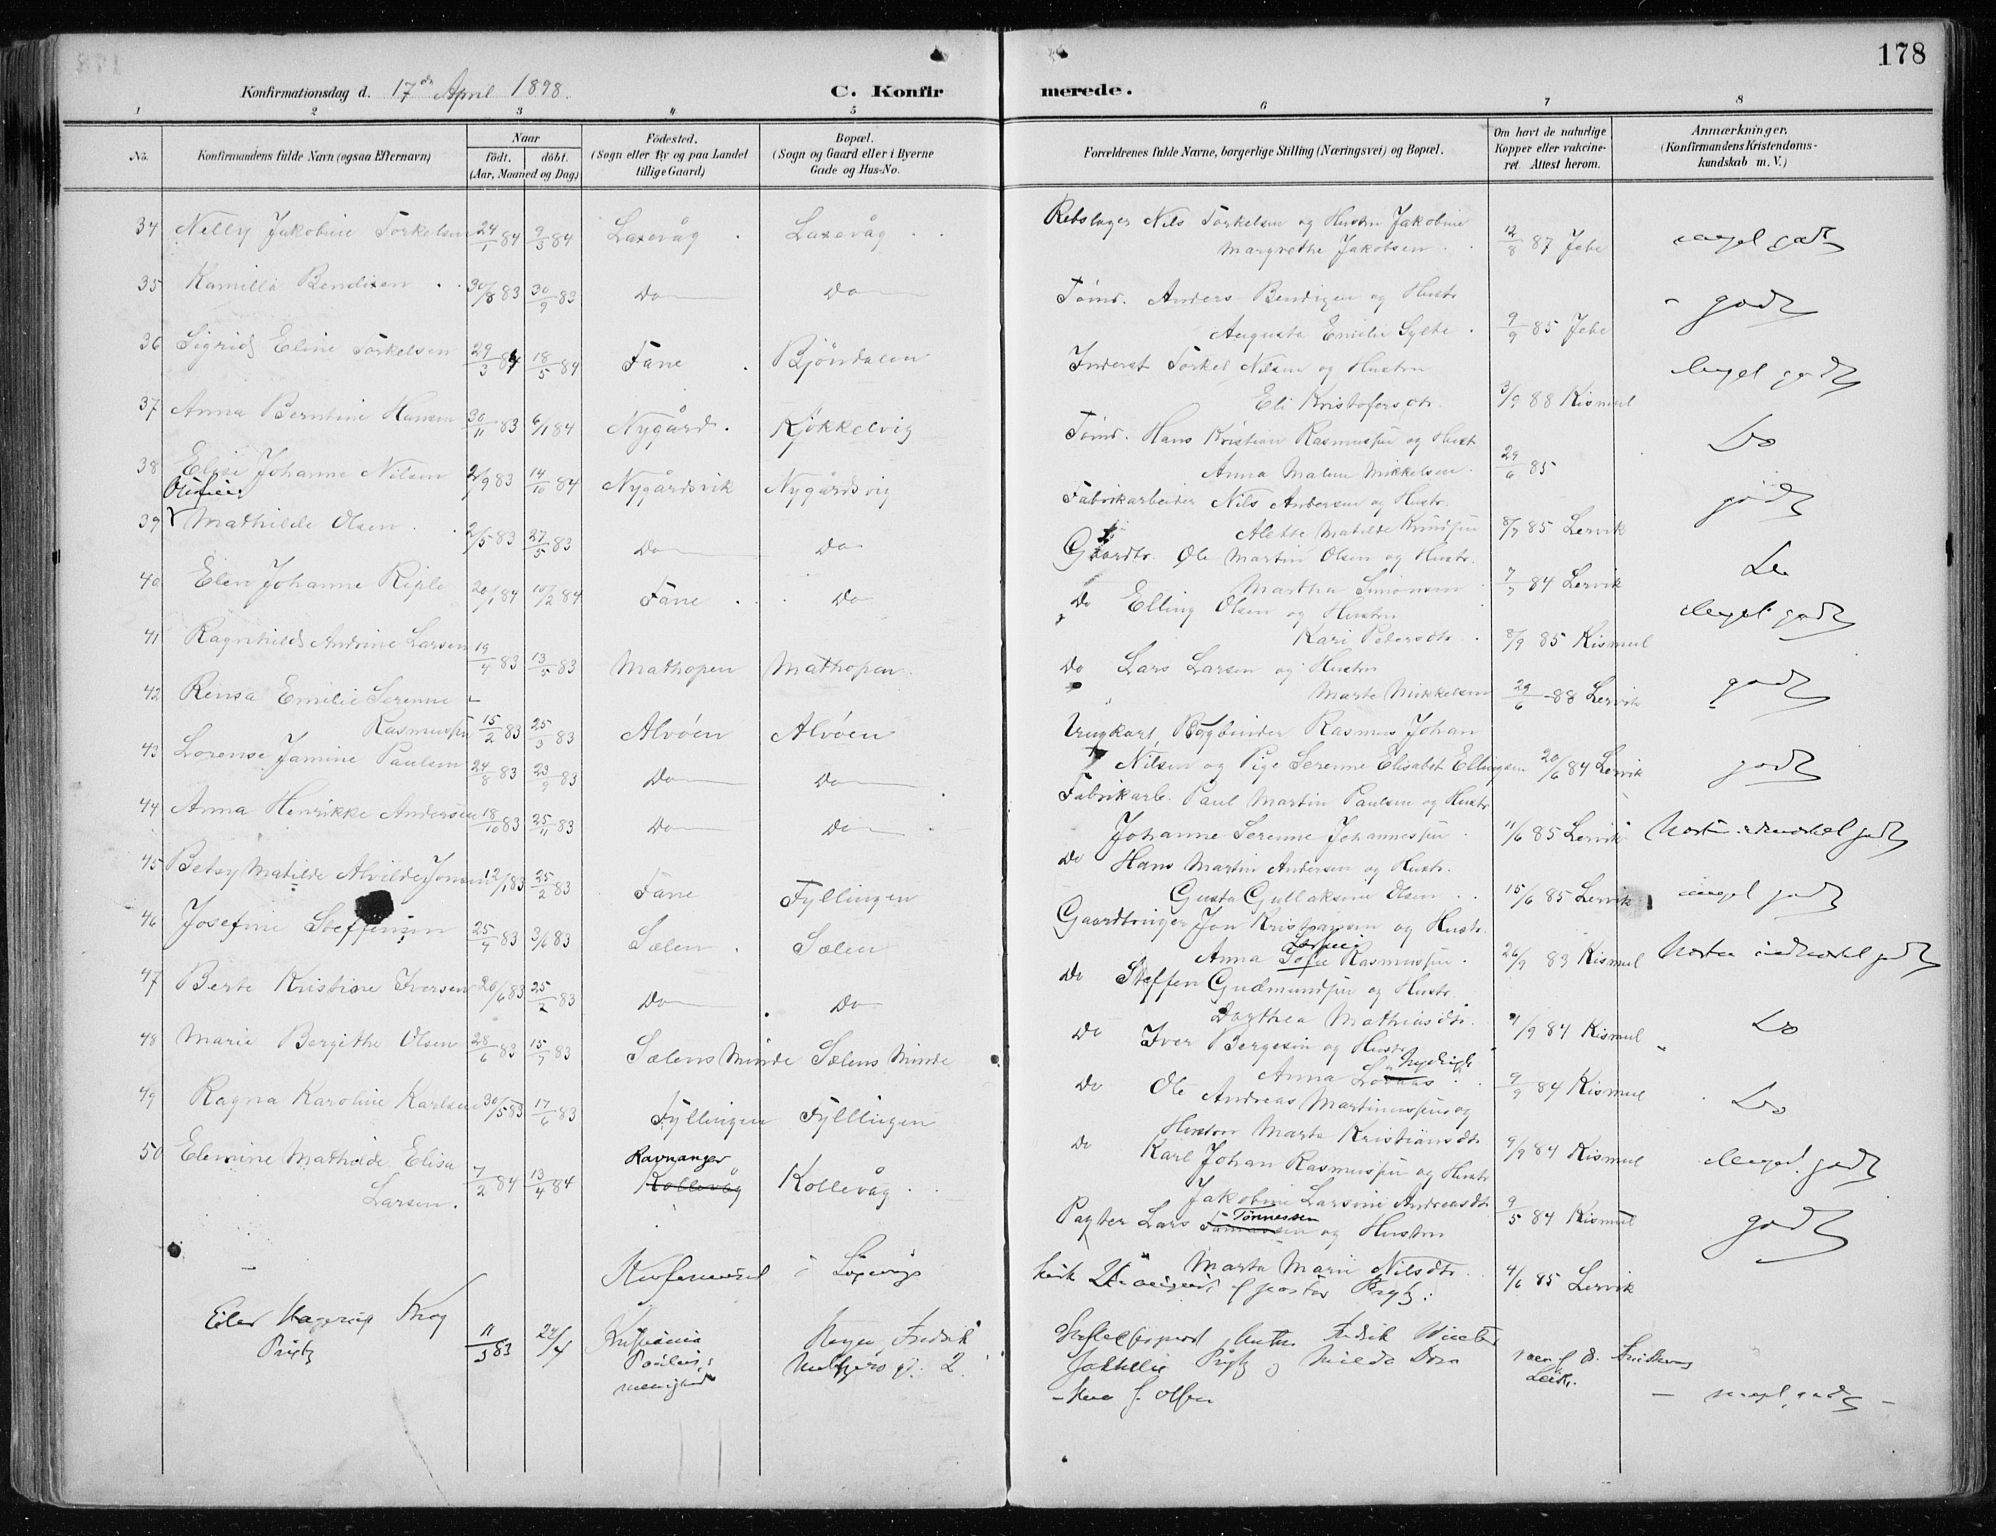 178
Konfirmationsdag d. 17de April 1898.
C. Konfirmerede.
1 2 3 4 5 6 7 8
No.
Konfirmandens fulde Navn (ogsaa Efternavn)
Naar
født. døbt.
(Aar, Maaned og Dag)
Fødested.
(Sogn eller By og paa Landet
tillige Gaard)
Bopæl.
(Sogn og Gaard eller i Byerne
Gade og Hus-No.
Forældrenes fulde Navne, borgerlige Stilling (Næringsvei) og Bopæl.
Om havt de naturlige
Kopper eller vakcine-
ret. Attest herom.
Anmærkninger.
(Konfirmandens Kristendoms-
kundskab m. V.)
34 Nelly Jakobine Torkelsen 24/1 84 9/3 84 Laxevåg Laxevåg
Rebslager Nils Torkelsen og Hustru Jakobine
Margrethe Jakobsen 12/8 87 Jebe meget godt
35 Kamilla Bendixen 30/8 83 30/9 83 Do Do
Tømd. Anders Bendixen og Hustr
Augusta Emilie Sylte 9/9 85 Jebe godt
36 Sigrid Eline Torkelsen 29/3 84 18/5 84 Fane Bjøndalen
Inderst Torkel Nilsen og Hustru
Eli Kristofersdtr. 3/9 88 Kismul meget godt
37 Anna Berntine Hansen 30/11 83 6/1 84 Nygård Kjøkkelvig
Tømd. Hans Kristian Rasmussen og Hust
Anna Malene Mikkelsen 29/6 85 Do
38 Elise Johanne Nilsen 2/9 83 14/10 84 Nygårdsvik Nygårdsvig
Fabrikarbeider Nils Andersen og Hustr.
Alette Matilde Knudsen 8/7 85 Lervik godt
39 Mathilde Olsen 2/5 83 27/5 83 Do Do
Gaardbr. Ole Martin Olsen og Hustr.
Martha Simonsen 7/7 84 Lervik Do
40 Elen Johanne Riple 20/1 84 10/2 84 Fane Do
Do Elling Olsen og Hustru
Kari Pedersdtr. 8/9 85 Kismul Meget godt
41 Ragnhild Andrine Larsen 19/4 83 13/5 83 Mathopen Mathopen
Do Lars Larsen og Hustru
Marte Mikkelsen 29/6 88 Lervik godt
42 Rensa Emilie Serenne
Rasmussen 15/2 83 25/3 83 Alvøen Alvøen
Ungkarl Bogbinder Rasmus Johan
Nilsen og Pige Serenne Elisabet Ellingsen 20/6 84 Lervik godt
43 Lorense Jamine Paulsen 24/8 83 23/9 83 Do Do
Fabrikarb. Paul Martin Paulsen og Hustr
Johanne Serenne Johannessen 11/6 85 Lervik
44 Anna Henrikke Andersen 18/10 83 25/11 83 Do Do
Do Hans Martin Andersen og Hustr.
Gusta Gullaksine Olsen 15/6 85 Lervik meget godt
45 Betsy Matilde Alvilde Jonsen 12/1 83 25/2 83 Fane Fyllingen
Gaardbruger Jon Kristiansen og Hustr.
Anna Rasmussen 26/9 83 Kismul
46 Josefine Steffensen 25/4 83 3/6 83 Sælen Sælen
Do Steffen Gudmundsen og Hustr.
Dorthea Mathiasdtr. 4/9 84 Kismul Do
47 Berte Kristine Iversen 20/6 83 25/2 83 Do Do
Do Iver Børgesen og Hustr
Anna 9/9 84 Kismul Do
48 Marie Bergithe Olsen 28/6 83 15/7 83 Sælens Minde Sælens Minde
Do Ole Andreas Martinussen og
Hustru Marta Kristiansdtr 9/9 84 Kismul Meget godt
49 Ragna Karoline Karlsen 30/5 83 17/6 83 Fyllingen Fyllingen
Do Karl Johan Rasmussen og Hustr
Jakobine Larsine Andreasdtr. 9/5 84 Kismul godt
50 Elemine Mathilde Elisa
Larsen. 7/2 84 13/4 84 Ravnanger Kollevåg Kollevåg
Pagter Lars Tønnessen og Hustru
Marta Marie Nilsdtr. 4/6 85 Lervik
Konfirmeret i
Eiler Hagerup Krog
11/3 83 24/4 Kristiania
Paulus
menighed
2.
og Milda
Olsen
meget godt